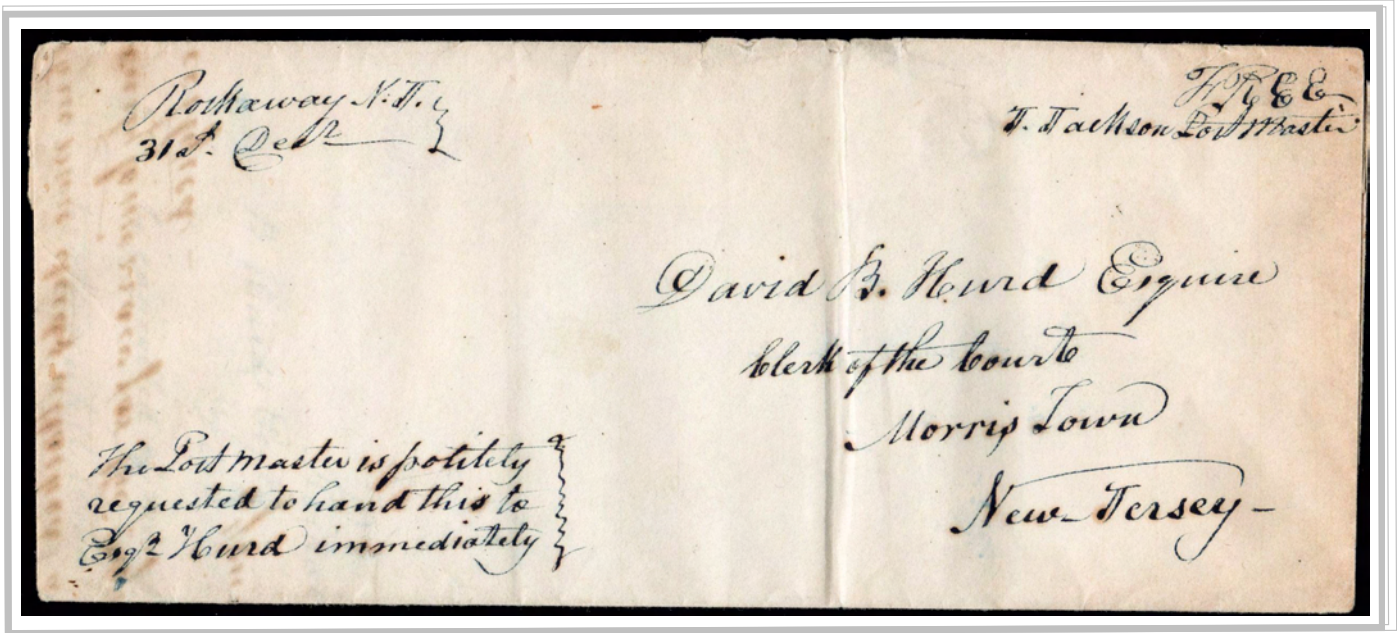 Rockaway N. J.
31st. Decr
FREE
J. Jackson Post Master
David B. Hurd Esquire
Clerk of the Court
Morris Town
New-Jersey-
The Post Master is politely
requested to hand this to
Esqr. Hurd immediately